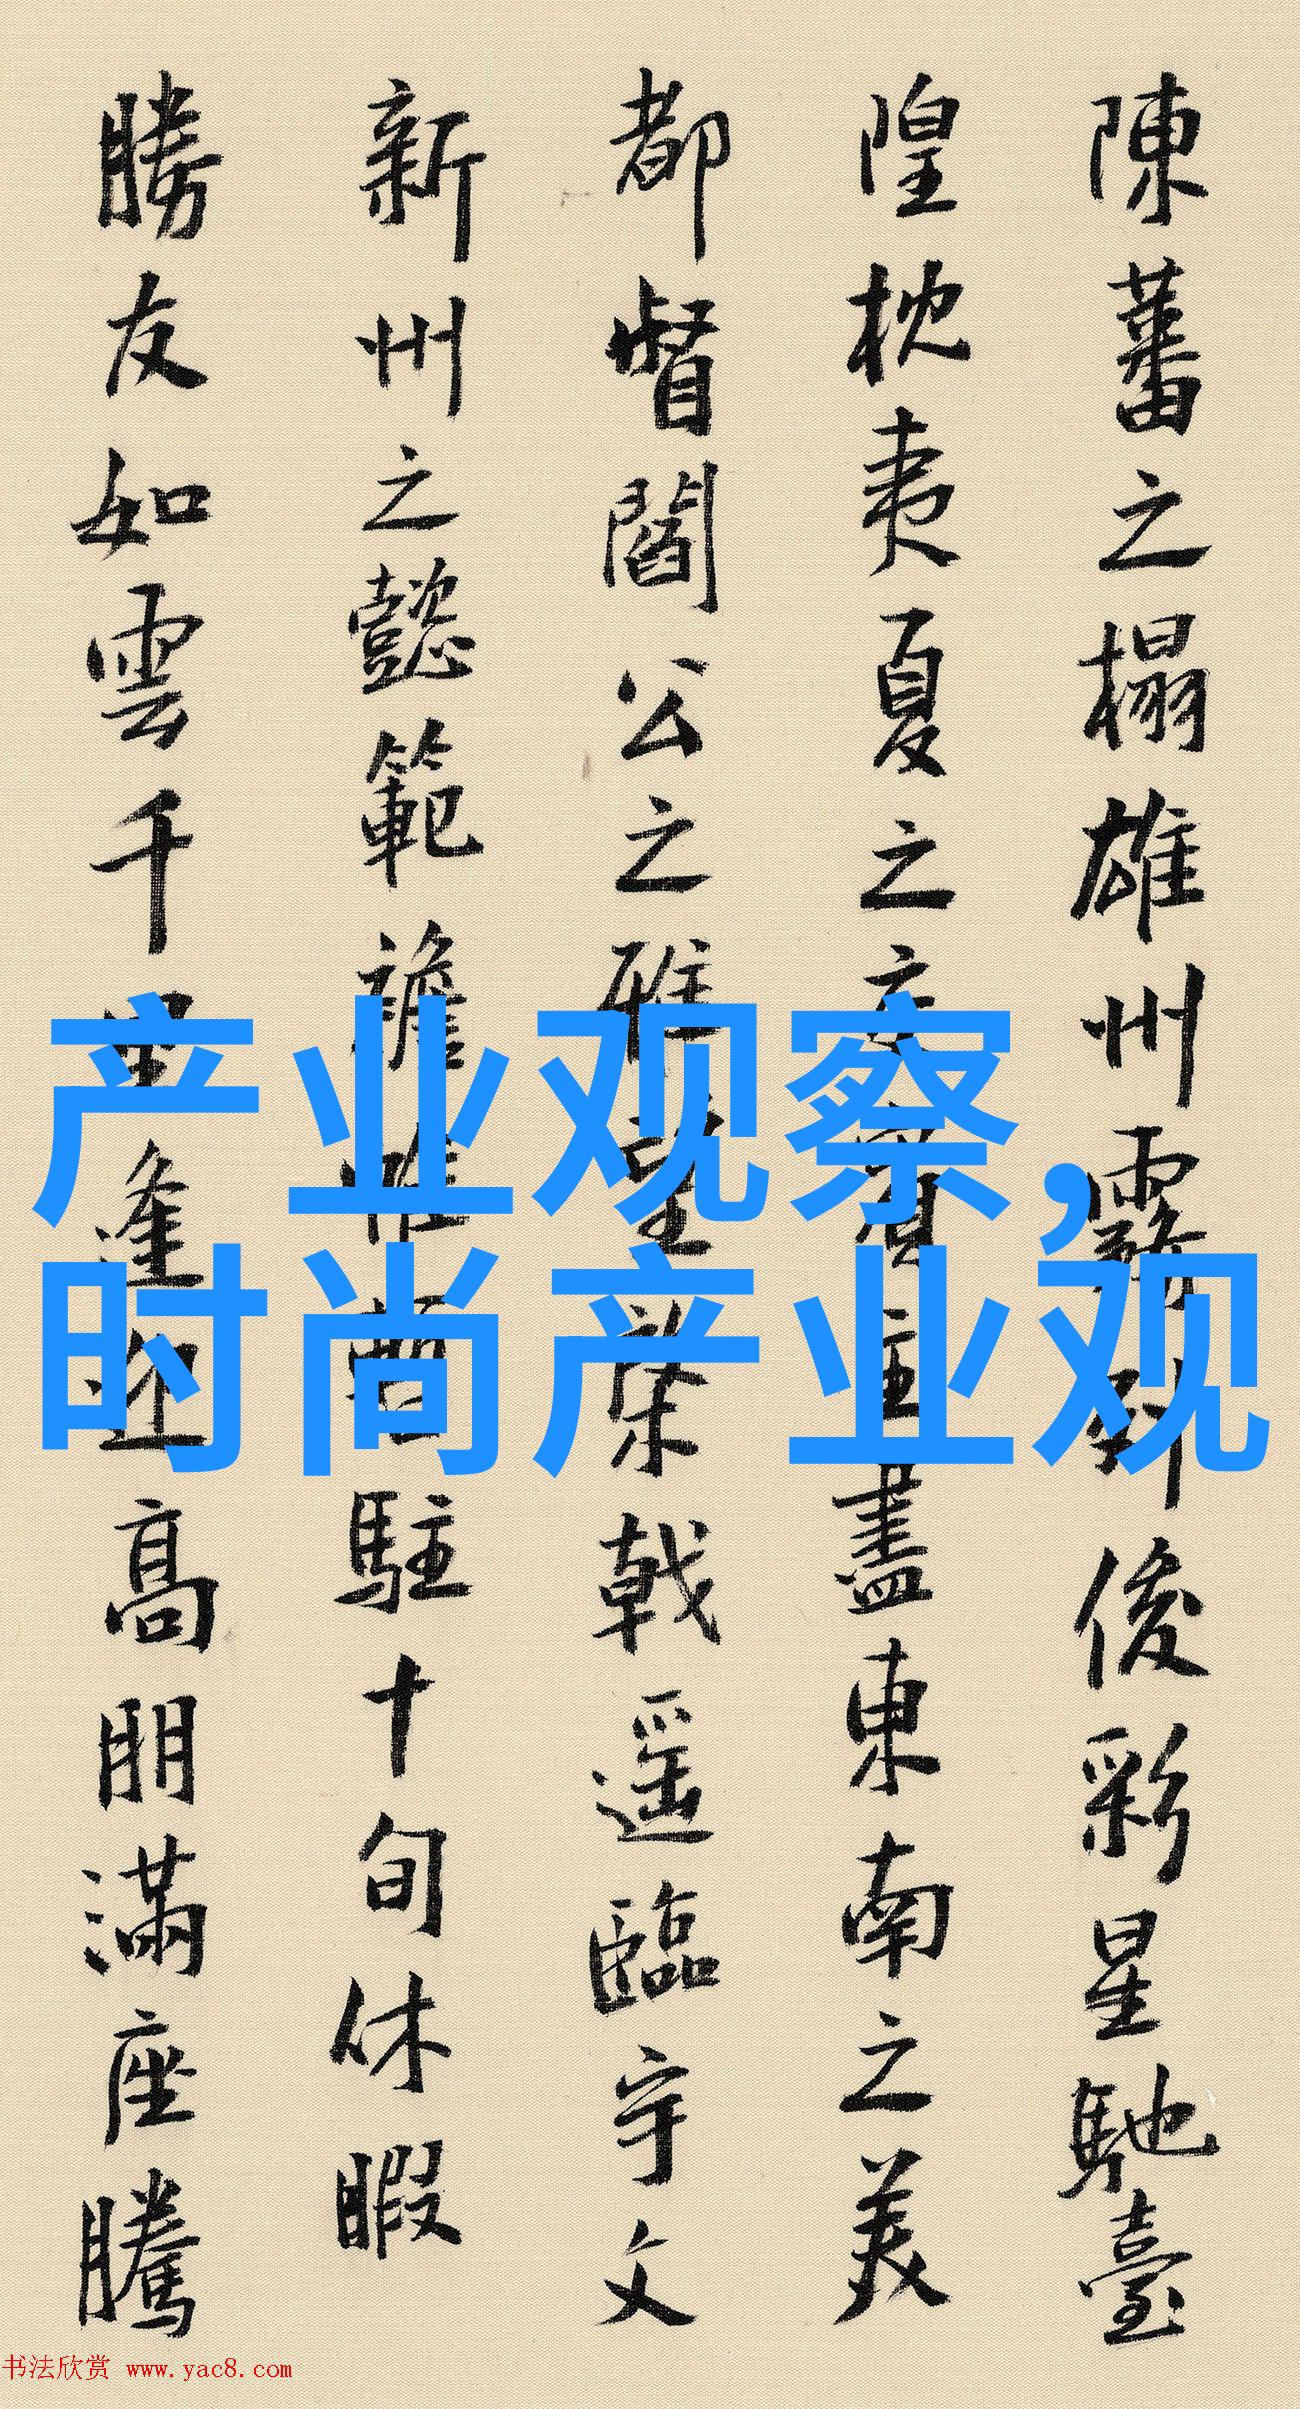 陳蕃之榻雄州霧列俊彩星馳臺
隍枕夷夏之交賓主盡東南之美
都督閻公之雅望棨戟遥臨宇文
新州之懿範襜帷暫駐十旬休暇
勝友如雲千里逢迎高朋滿座騰
产业观察,
时尚产业观
书法欣赏 www.yac8.com